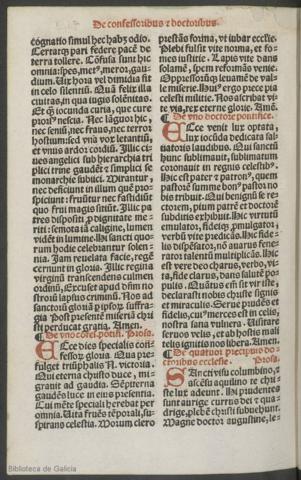 De confessoribus ⁊ doctoribus.
cõgnatio simul hec habꝫ odio.
Certarqꝫ pari federe pacẽ de
terra tollere. Cõfusa sunt hic
omnia: spes, metꝰ, meror, gau/
dium. Uix hora vel dimidia fit
in celo silentiũ. Quã felix illa
ciuitas, in qua iugis solẽnitas.
Et qꝫ iocunda curia, que cure
prorsꝰ nescia. Nec lãguor hic,
nec seniũ, nec fraus, nec terror
hostium: sed vna vox letantiũ,
et vnus ardor cordiũ. Illic ci/
ues angelici sub hierarchia tri
plici trine gaudẽt ⁊ simplici se
monarchie subici. Mirantur,
nec deficiunt in illum quẽ pro/
spiciunt: fruũtur nec fastidiũt
quo frui magis sitiũt. Illic pa
tres dispositi pro dignitate me/
riti: semota iã caligine, lumen
vidẽt in lumine. Hi sancti quo/
rum hodie celebrantur solen/
nia. Iam reuelata facie, regẽ
cernunt in gloria. Illic regina
virginũ transcendens culmen
ordinũ, Excuset apud dñm no
strorũ lapsus criminũ. Nos ad
sanctorũ gloriã per ipsorũ suffra/
gia Post presentẽ miseriã chri
sti perducat gratia. Amen.
De vno cõfes. põtifi. Prosa.
Ecce dies specialis con/
fessoꝝ gloria. Qua pre/
fulget triũphalis N. victoria.
Qui eterna christo duce, mi/
grauit ad gaudia. Sẽpiterna
gaudẽs luce in eius presentia.
Cui mẽte speciali herebat per
omnia. Uita fruẽs tẽporali, su/
spirans celestia. Morum clero
prestãs forma, vt iubar ecclie.
Plebi fulsit vite norma, et fo/
mes iustitie. Lapis vite dans
solamẽ, spem reformãs venie.
Oppressoꝝqꝫ leuamẽ de val/
le miserie. Huiꝰ ergo piece pia
celesti militie. Nos ascribat vi
te via, rex eterne glorie. Amẽ.
De vno doctore pontifice.
Ecce venit lux optata,
lux iocũda dedicata sal/
uatoris laudibus. Qui sanctũ
hunc sublimauit, sublimatum
coronauit in regnis celestibꝰ.
Hic est patronus, quem
pastorẽ summe bonꝰ pastor no
bis tribuit. Qui benignũ se re
ctorem, pium patrẽ et doctorẽ
subditis exhibuit. Hic virtutũ
emulator, fideiqꝫ pmulgator,
verbũ vite predicãs. Hic fide/
lis dispẽsator, nõ auarus fene/
rator talentũ multiplicãs. Hic
est vere deo charus, verbo, vi/
ta, fide clarus, dans salutẽ po/
pulis. Quãtus em̃ sit vir iste,
declarasti nobis christe signis
et miraculis. Serue prudẽs et
fidelis, cuiꝰ merces est in celis,
nostra sana vulnera. Uisitare
seruos velis, et ab hostis mali
telis igniti nos libera. Amen.
De quatuor precipuis do/
ctoribus ecclesie. Prosa.
Sanciuisti columbino, ⁊
acsẽsu aquilino te chri/
ste lux adeunt. Hi prudentes
sunt aurige currus dei ⁊ qua/
drige, plebẽ christi subuehunt.
Magne doctor augustine, le/